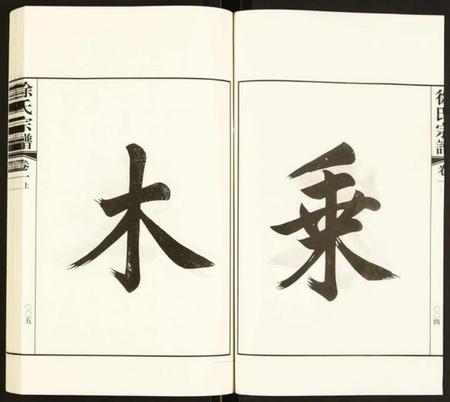 乘
徐氏宗譜
卷一
〇〇四
木
徐氏宗譜
卷一上
〇〇五